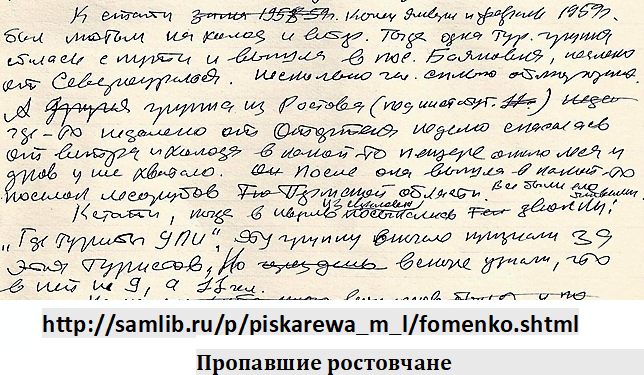 Кстати зима 1958-59г. конец января и февраль 1959г.
был лютым на холод и ветр. Тогда одна тур. группа
сбилась с пути и вышла в пос. Баяновка, недалеко
от Североуральска. Несколько чел. сильно обморожены.
А другая группа из Ростова (пединститут.) недел
где-то недалеко от Отортена неделю спасалась
от ветра и холода в какой-то пещере около леса и
дров уже не хватало. После она вышла в какой-то
поселок лесорубов Пермской области. Все были
Кстати, тогда в посыпались звонки:
"Где туристы УПИ". Эту группу вначале признали за
этих туристов, Но вскоре узнали, что
в ней не 9, а 11 чел.
http://samlib.ru/p/piskarewa_m_l/fomenko.shtml
Пропавшие ростовчане